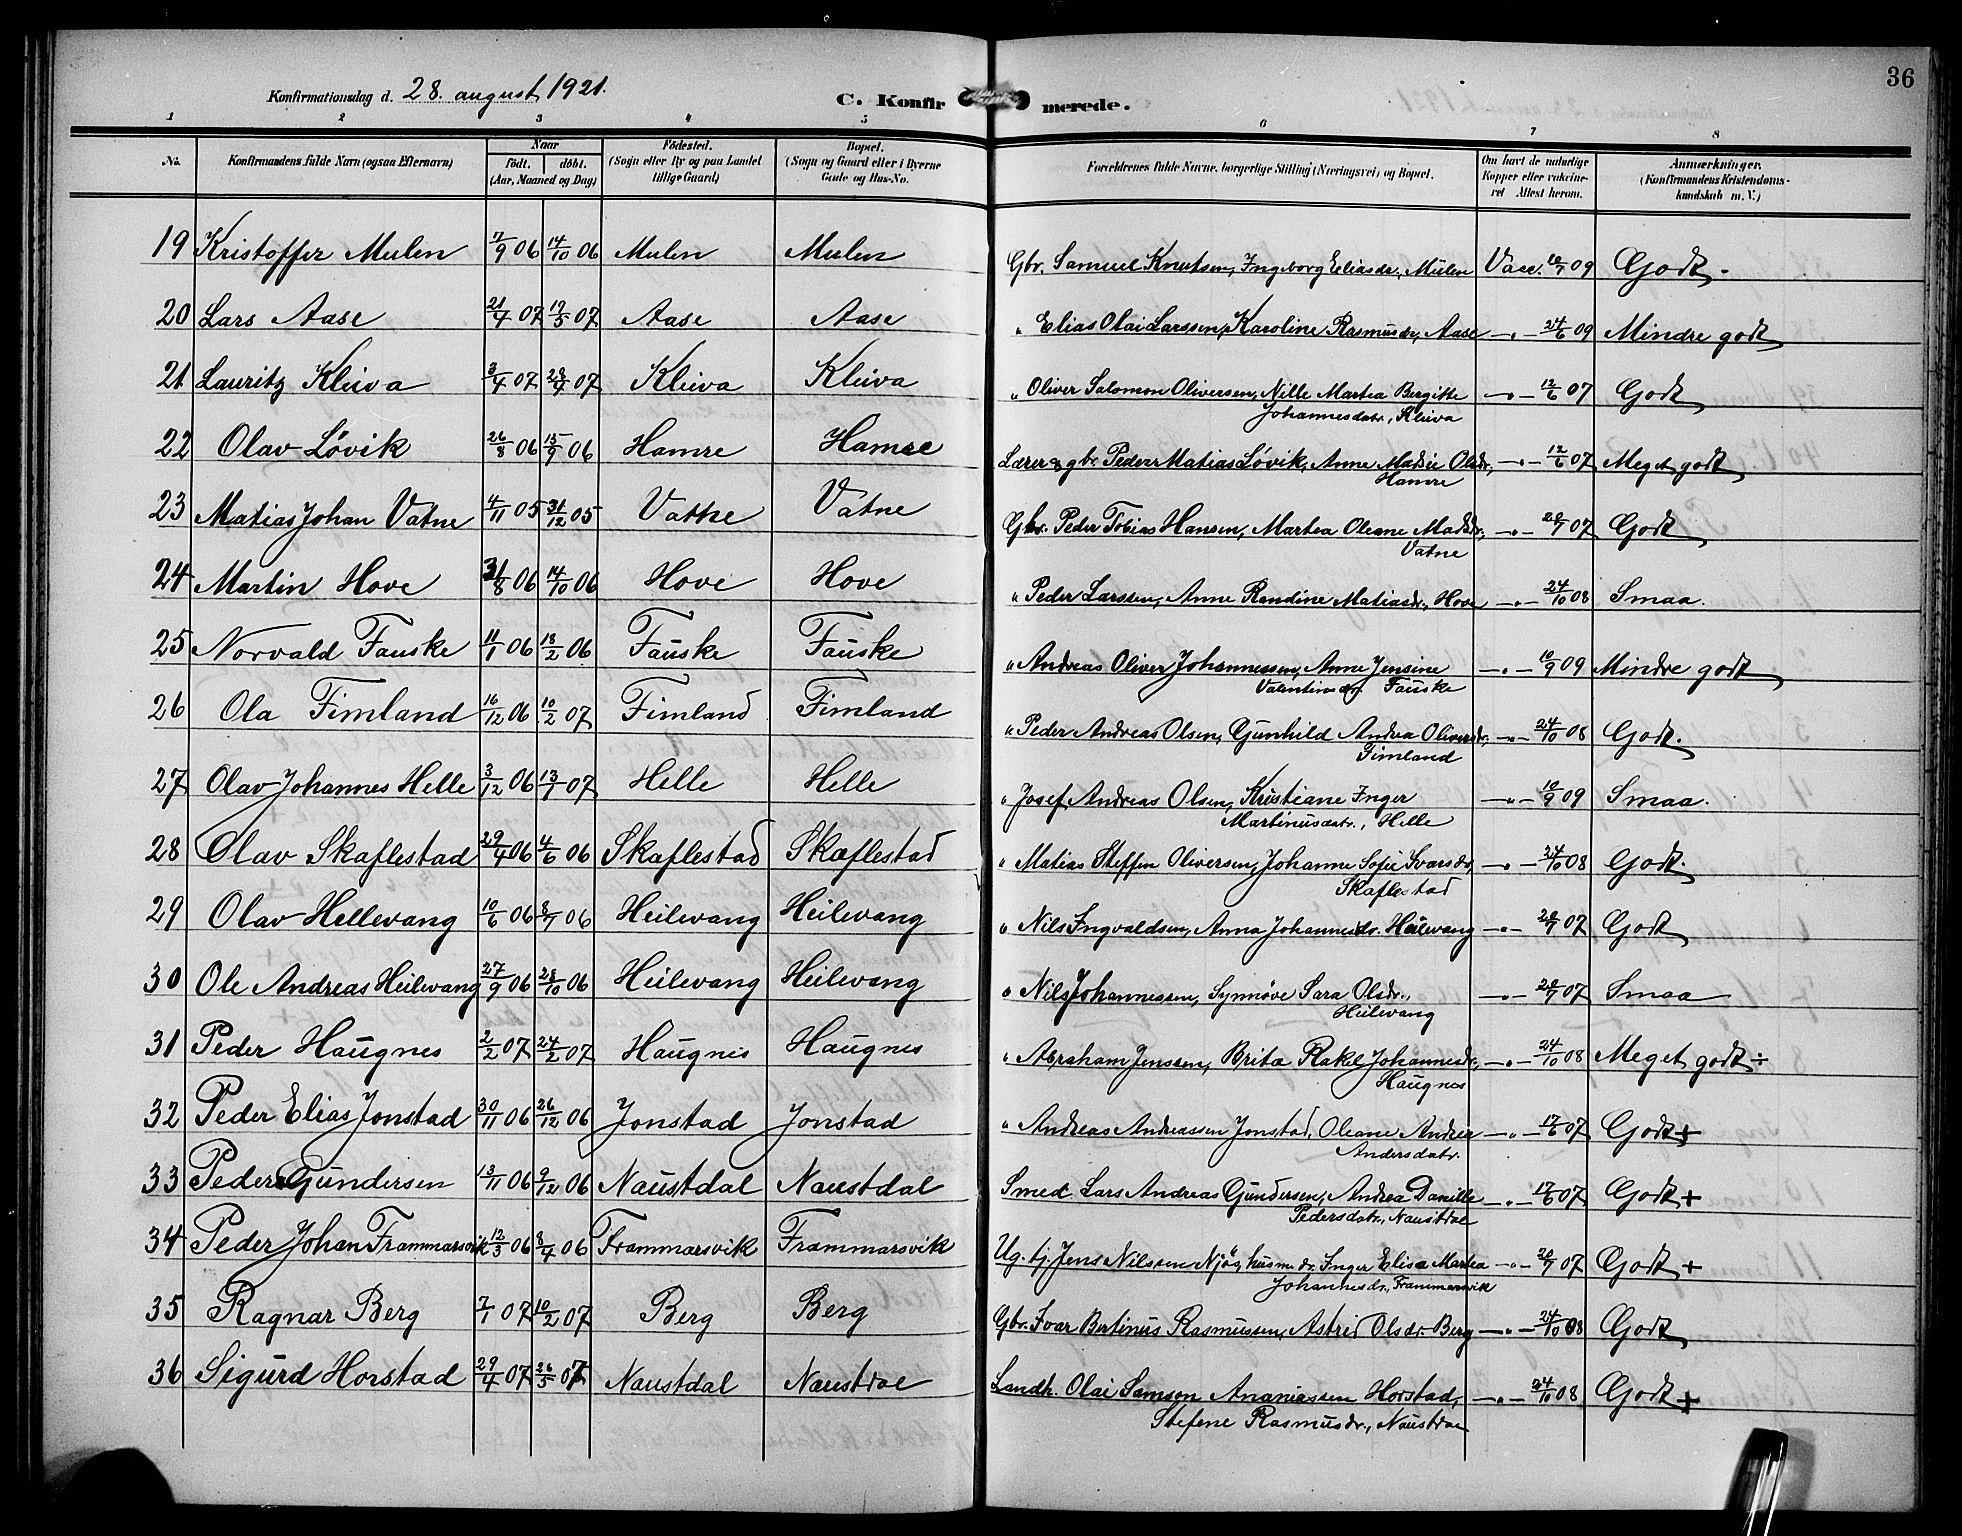 36
Konfirmationsdag d. 28. august 1921.
C. Konfirmerede.
1 2 3 4 5 6 7 8
No. Konfirmandens fulde Navn (ogsaa Efternavn) Naar født. døbt. (Aar, Maaned og Dag) Fødested. (Sogn eller By og paa Landet tillige Gaard) Bopæl. (Sogn og Gaard eller i Byerne Gade og Hus-No. Forældrenes fulde Navne, borgerlige Stilling (Næringsvei) og Bopæl. Om havt de naturlige Kopper eller vaccineret Attest herom. Anmærkninger. (Konfirmandens Kristendomskundskab m. V.)
19 Kristoffer Mulen 7/9 06 14/10 06 Mulen Mulen Gbr. Samuel Knutsen, Ingeborg Eliasdr., Mulen Vacc. 10/7 09 Godt.
20 Lars Aase 21/4 07 19/5 07 Aase Aase " Elias Olai Larssen, Karoline Rasmusdr., Aase —"— 24/6 09 Mindre godt
21 Lauritz Kleiva 3/4 07 28/4 07 Kleiva Kleiva " Oliver Salomon Oliversen, Nille Martea Bergitte —"— 12/6 07 Godt
Johannesdatr., Kleiva
22 Olav Løvik 26/8 06 15/9 06 Hamre Hamre Lærer & gbr. Peder Matias Løvik, Anne Matsie Olsdr., —"— 12/6 07 Meget godt
Hamre
23 Matias Johan Vatne 4/11 05 31/12 05 Vatne Vatne Gbr. Peder Tobias Hansen, Martea Oleane Madsdr., —"— 20/7 07 Godt
Vatne
24 Martin Hove 31/8 06 14/10 06 Hove Hove " Peder Larssen, Anne Randine Matiasdr., Hove —"— 24/10 08 Smaa.
25 Norvald Fauske 11/1 06 18/2 06 Fauske Fauske " Andreas Oliver Johannessen, Anne Jensine —"— 10/9 09 Mindre godt
Valentinsdr. Fauske
26 Ola Fimland 16/12 06 10/2 07 Fimland Fimland " Peder Andreas Olsen, Gunhild Andrea Oliversdr., —"— 24/10 08 Godt.
Fimland
27 Olav Johannes Helle 3/12 06 13/1 07 Helle Helle " Josef Andreas Olsen, Kristiane Inger —"— 10/9 09 Smaa.
Martinusdatr., Helle
28 Olav Skaflestad 29/4 06 4/6 06 Skaflestad Skaflestad " Matias Steffen Oliversen, Johanne Sofie Ivarsdr., —"— 24/10 08 Godt.
Skaflestad
29 Olav Hellevang 10/6 06 8/7 06 Heilevang Heilevang " Nils Ingvaldsen, Anna Johannesdr. Heilevang —"— 20/7 07 Godt
30 Ole Andreas Heilevang 27/9 06 28/10 06 Heilevang Heilevang " Nils Johannessen, Synnøve Sara Olsdr., —"— 20/7 07 Smaa
Heilevang
31 Peder Haugnes 2/2 07 24/2 07 Haugnes Haugnes " Abraham Jenssen, Brita Rakel Johannesdr., —"— 24/10 08 Meget godt ÷
Haugnes
32 Peder Elias Jonstad 30/11 06 26/12 06 Jonstad Jonstad " Andreas Andreassen Jonstad, Oleane Andrea —"— 12/6 07 Godt +
Andersdatr.
33 Peder Gundersen 13/11 06 9/12 06 Naustdal Naustdal Smed Lars Andreas Gundersen, Andrea Danille —"— 12/6 07 Godt +
Pedersdatr., Naustdal
34 Peder Johan Frammarsvik 12/3 06 8/4 06 Frammarsvik Frammarsvik Ug. tj. Jens Nilssen Njøs, husm. dr. Inger Elisa Martea —"— 20/7 07 Godt +
Johannesdr., Frammarsvik
35 Ragnar Berg 7/1 07 10/2 07 Berg Berg Gbr. Ivar Bertinus Rasmussen, Astrid Olsdr. Berg —"— 24/10 08 Godt
36 Sigurd Horstad 29/4 07 26/5 07 Naustdal Naustdal Landh. Olai Samson Ananiassen Horstad, —"— 24/10 08 Godt +
Stefene Rasmusdr., Naustdal